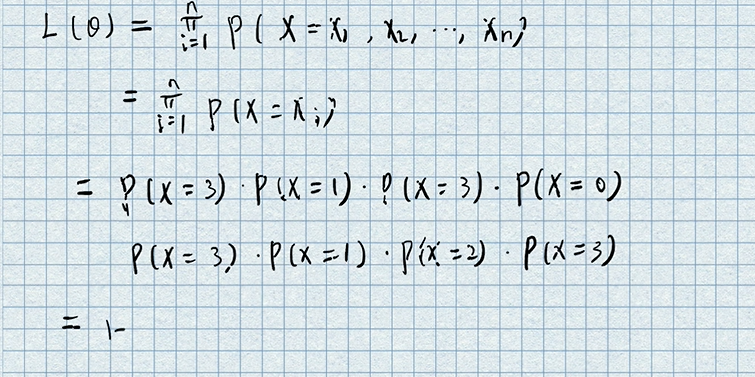 L(θ) = ∏_{i=1}^{n} P(X = x₁, x₂, ⋯, xₙ)
= ∏_{i=1}^{n} P(X = xᵢ)
= P(X=3) · P(X=1) · P(X=3) · P(X=0)
P(X=3) · P(X=1) · P(X=2) · P(X=3)
=